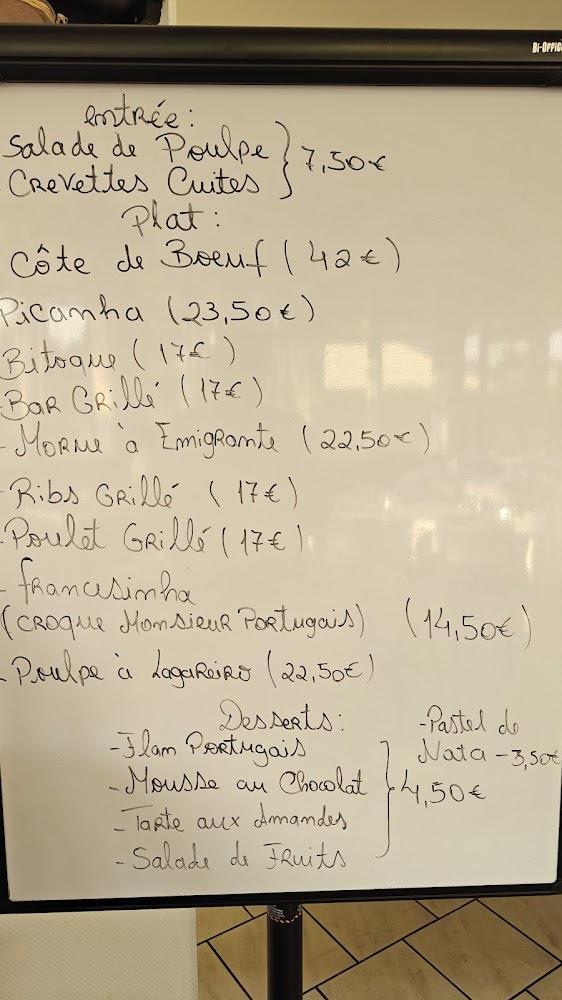 Bi-Office
entrée:
Salade de Poulpe
Crevettes Cuites } 7,50€
Plat:
Côte de Boeuf (42€)
Picanha (23,50€)
Bitoque (17€)
Bar Grillé (17€)
- Morue à Emigrante (22,50€)
- Ribs Grillé (17€)
- Poulet Grillé (17€)
- francesinha
(Croque Monsieur Portugais) (14,50€)
- Poulpe à Lagareiro (22,50€)
Desserts:
- Flam Portugais
- Mousse au Chocolat
- Tarte aux Amandes
- Salade de Fruits
} 4,50€
- Pastel de
Nata - 3,50€